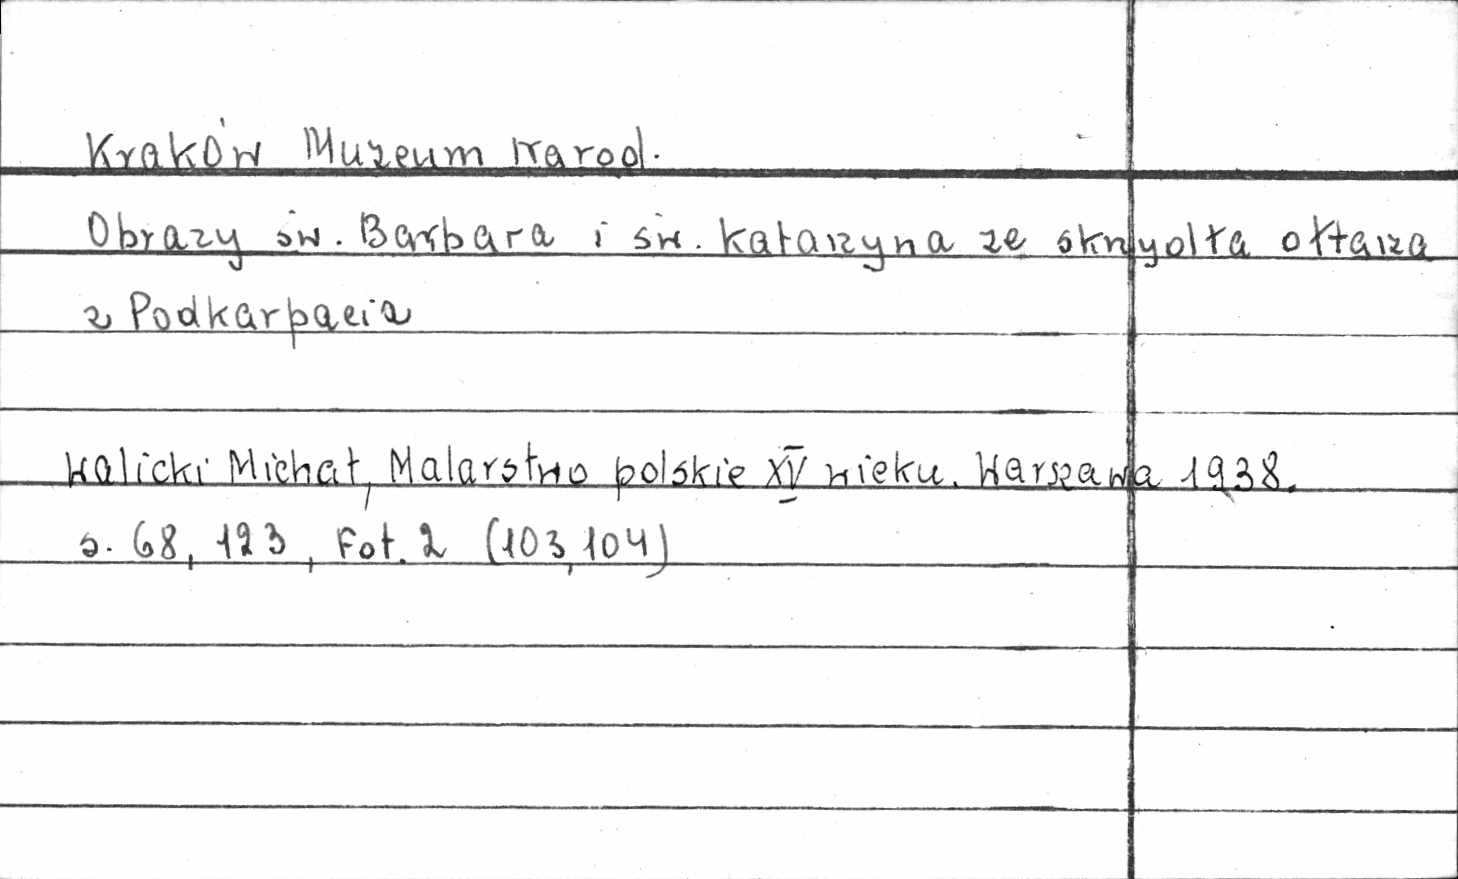 Kraków Muzeum Narod.
Obrazy św. Barbara i św. Katarzyna ze skrzydła ołtarza
z Podkarpacia
Walicki Michał, Malarstwo polskie XV wieku. Warszawa 1938.
s. 68, 123, Fot. 2 (103, 104)